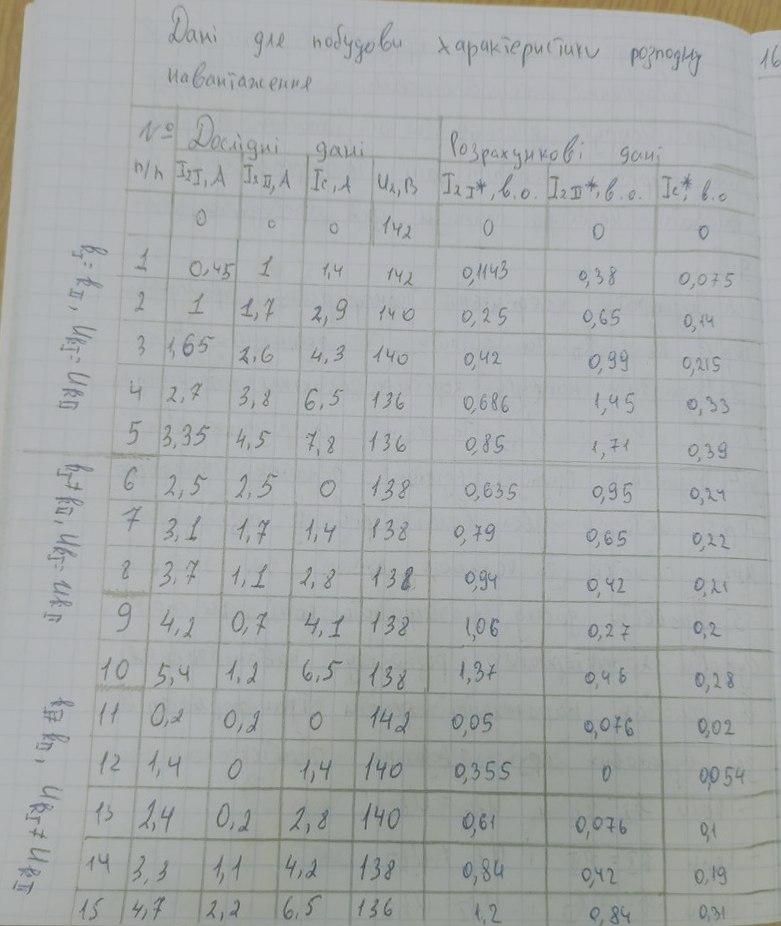 Дані для побудови характеристики розподілу
навантаження
16
№ Дослідні дані Розрахункові дані
п/п I₂I, А I₂II, А Iс, А U₂, В I₂I*, в.о. I₂II*, в.о. Iс*, в.о
0 0 0 142 0 0 0
1 0,45 1 1,4 142 0,1143 0,38 0,075
2 1 1,7 2,9 140 0,25 0,65 0,14
3 1,65 2,6 4,3 140 0,42 0,99 0,215
4 2,7 3,8 6,5 136 0,686 1,45 0,33
5 3,35 4,5 7,8 136 0,85 1,71 0,39
6 2,5 2,5 0 138 0,635 0,95 0,24
7 3,1 1,7 1,4 138 0,79 0,65 0,22
8 3,7 1,1 2,8 138 0,94 0,42 0,21
9 4,2 0,7 4,1 138 1,06 0,27 0,2
10 5,4 1,2 6,5 138 1,37 0,46 0,28
11 0,2 0,2 0 142 0,05 0,076 0,02
12 1,4 0 1,4 140 0,355 0 0,054
13 2,4 0,2 2,8 140 0,61 0,076 0,1
14 3,3 1,1 4,2 138 0,84 0,42 0,19
15 4,7 2,2 6,5 136 1,2 0,84 0,31
kI = kII, UkI = UkII
kI ≠ kII, UkI = UkII
UkI ≠ UkII